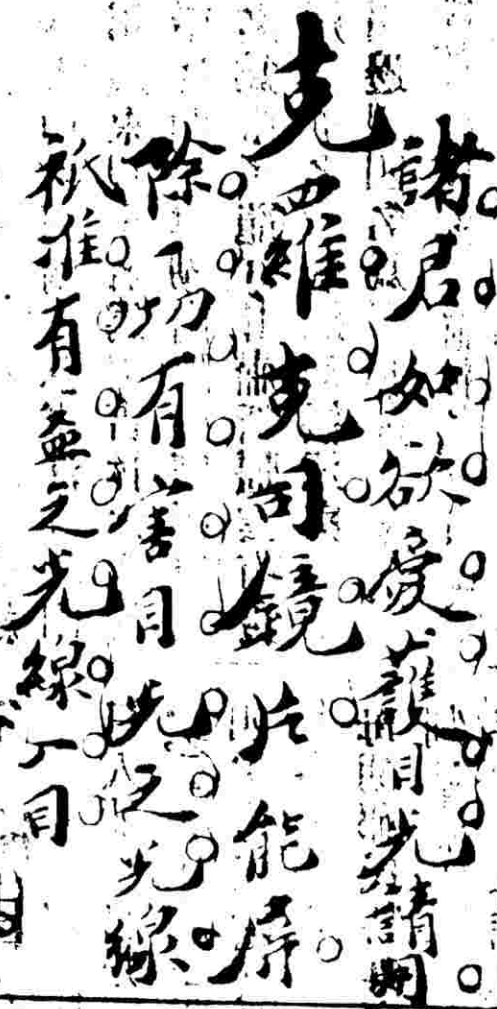 諸君如欲愛護目光請用
克羅克司鏡片能屏
除一切有害目光之光線
祇准有益之光線入目